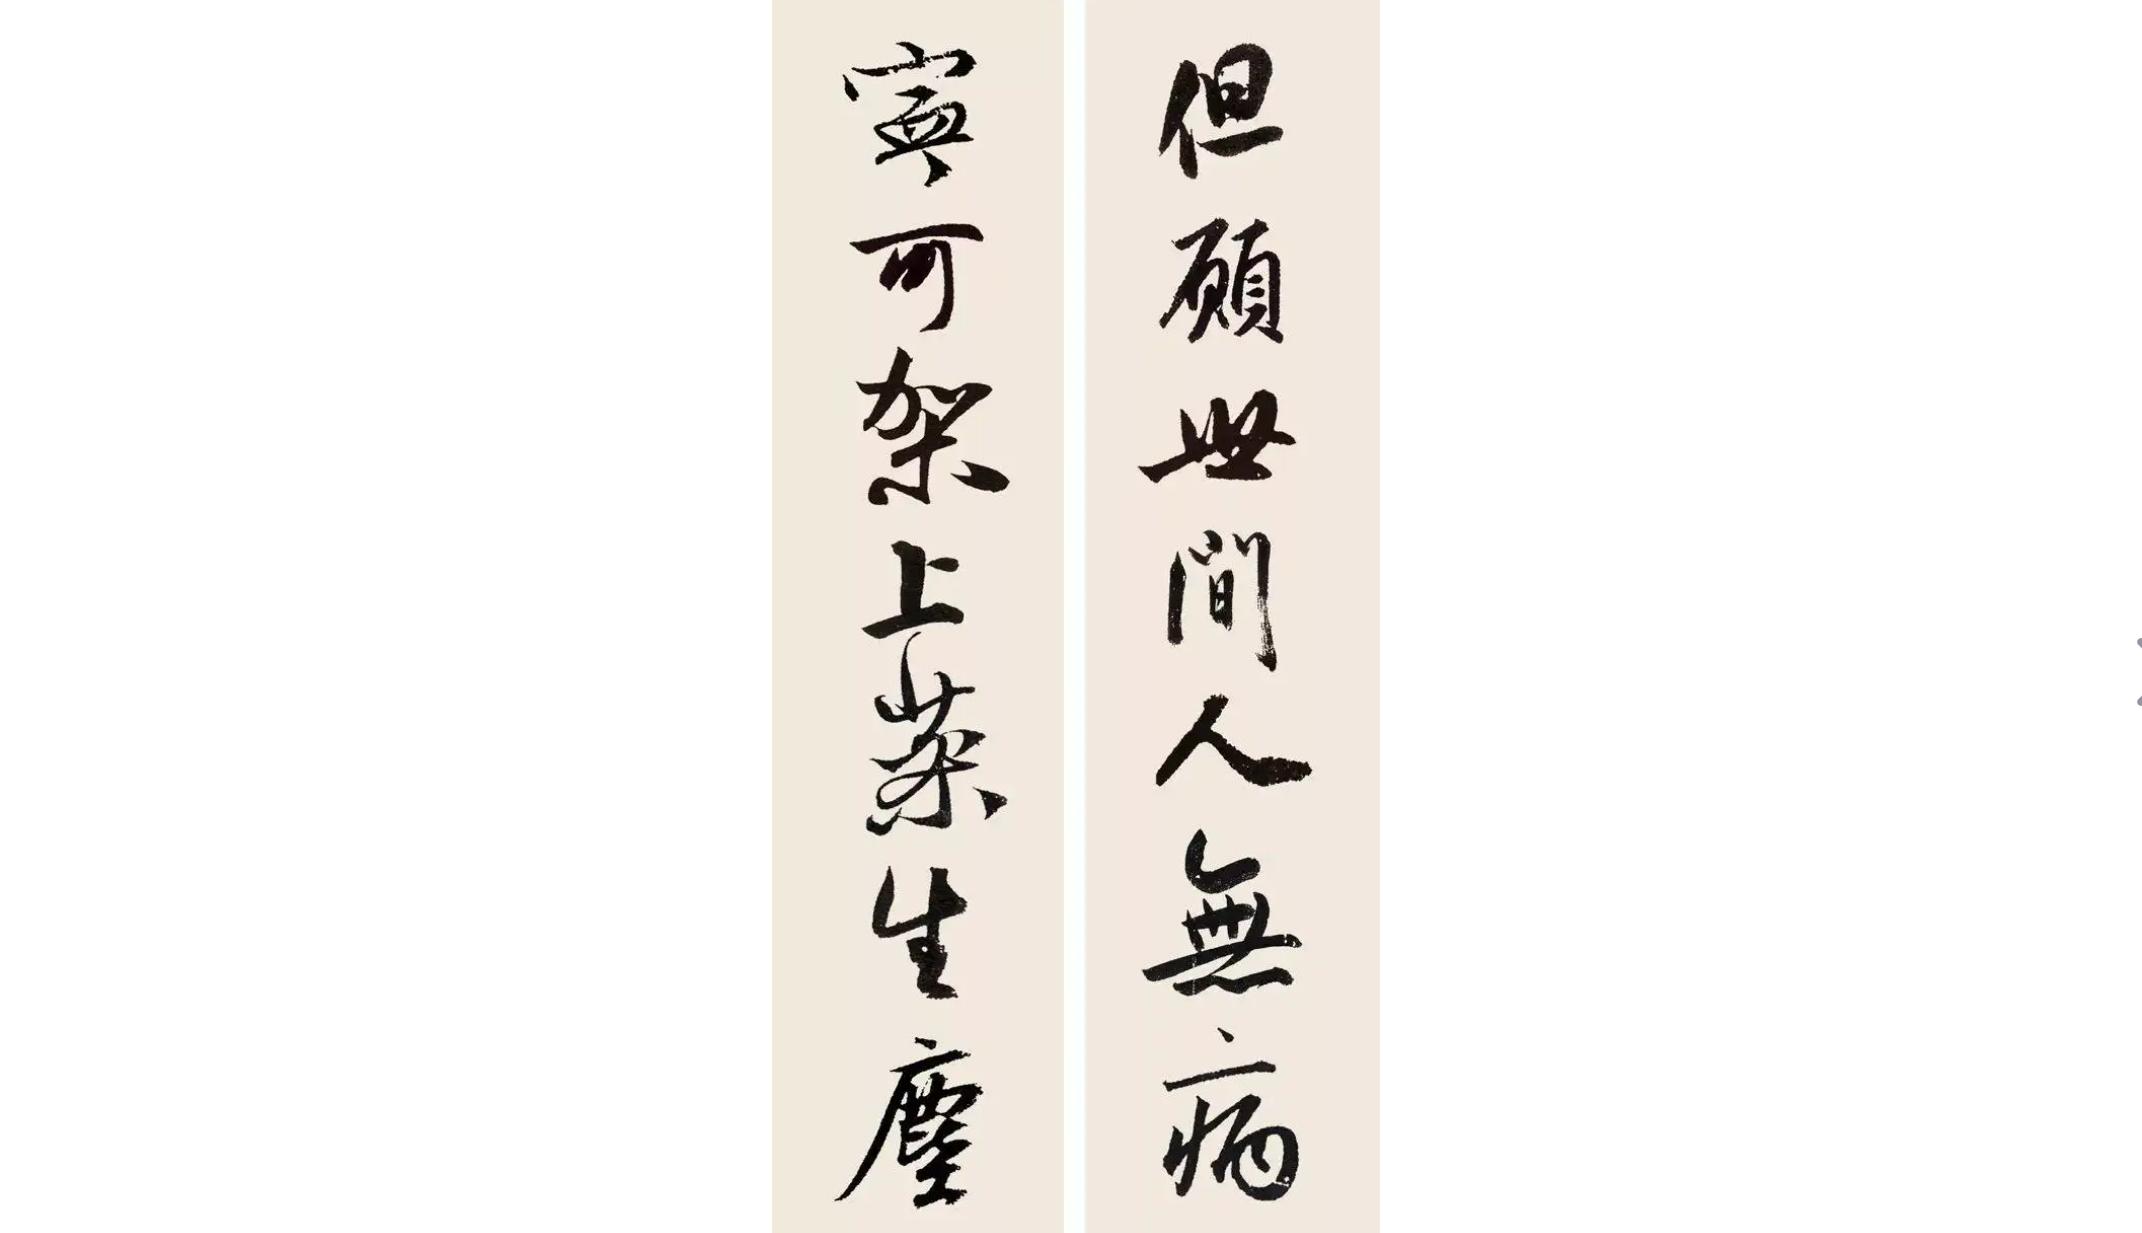 但願世間人無病
寧可架上藥生塵